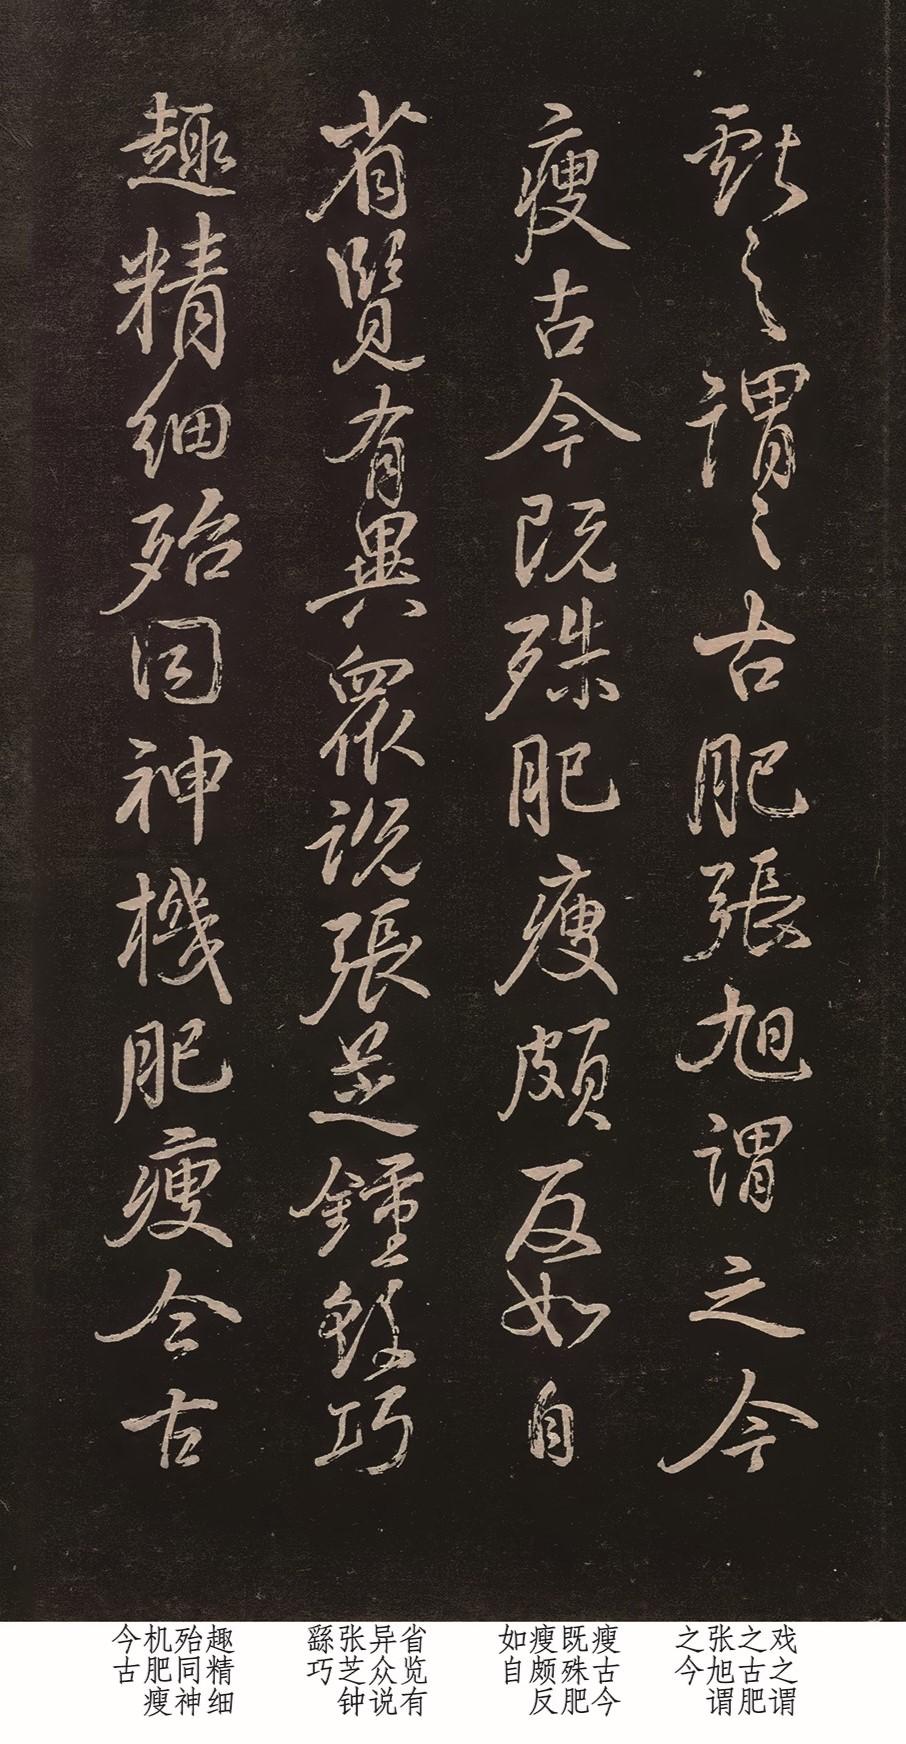 獻之謂之古肥張旭謂之今
瘦古今既殊肥瘦頗反如自
省覽有異眾說張芝鍾繇巧
趣精細殆同神機肥瘦今古
戏之谓
之古肥
张旭谓
之今
瘦古今
既殊肥
瘦颇反
如自
省览有
异众说
张芝钟
繇巧
趣精细
殆同神
机肥瘦
今古